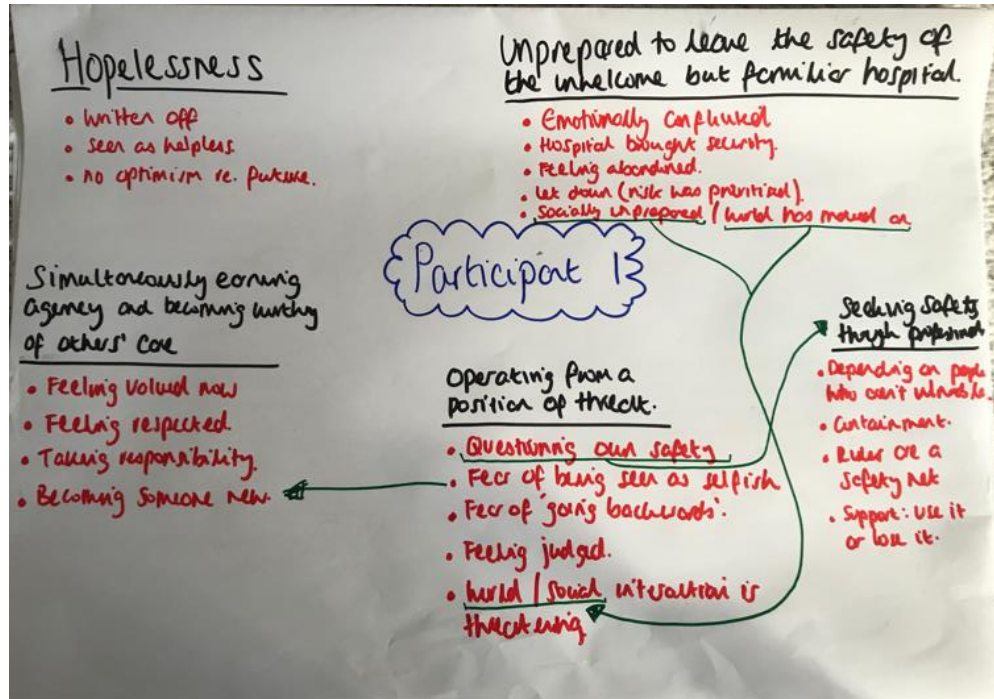 Hopelessness
• written off
• seen as helpless.
• no optimism re. future.
Unprepared to leave the safety of
the unwelcome but familiar hospital.
• Emotionally conflicted
• Hospital brought security.
• Feeling abandoned.
• let down (risk was prioritised).
• socially unprepared / world has moved on
Participant 1
Simultaneously earning
agency and becoming worthy
of others' care
• Feeling valued now
• Feeling respected.
• Taking responsibility.
• Becoming someone new.
Operating from a
position of threat.
• Questioning own safety
• Fear of being seen as selfish
• Fear of 'going backwards'.
• Feeling judged.
• world / social interaction is
threatening
Seeking safety
through
• Depending on people
who aren't
• Containment.
• Rules are a
safety net
• Support: use it
or lose it.